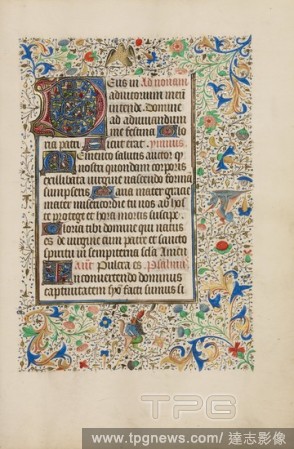 Deus in Ad nonam
adiutorium meu
intende. Domine
ad adiuvandum
me festina Glo
ria patri Sicut erat. ymnus.
Memento salutis auctor q
nostri quondam corporis
ex illibata virgine nascendo formā
sumpseris Maria mater gracie
mater misericordie tu nos ab hoste
protege et hora mortis suscipe.
Gloria tibi domine qui natus
es de virgine cum patre et sancto
spiritu in sempiterna secla Amen
Añe Pulcra es Psalmus
In convertendo dominus
captivitatem syon facti sumus si
TPG
www.tpgnews.com / 達志影像